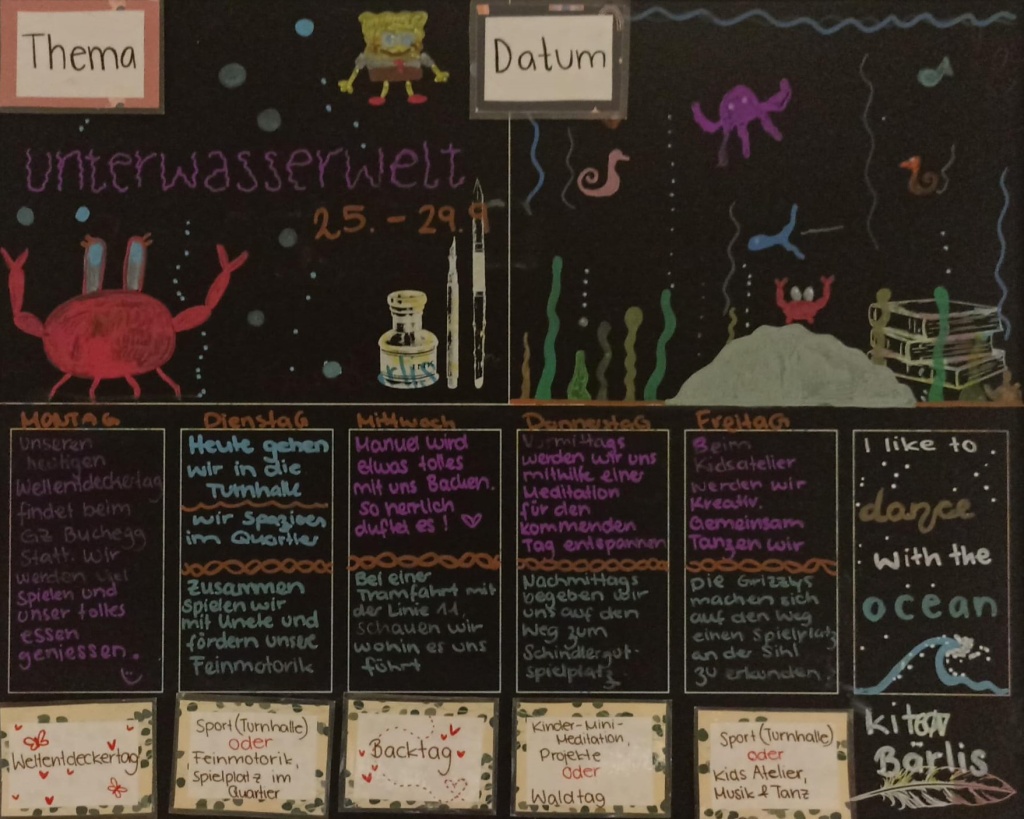 Thema
Datum
unterwasserwelt
25. - 29.9
MONTAG
Unseren
heutigen
Weltentdeckertag
findet beim
GZ Buchegg
Statt. Wir
werden viel
spielen und
unser tolles
essen
geniessen.
DienstaG
Heute gehen
wir in die
Turnhalle
wir Spazieren
im Quartier
Zusammen
Spielen wir
mit Knete und
fördern unsere
Feinmotorik
Mittwoch
Manuel wird
etwas tolles
mit uns Backen.
So herrlich
duftet es!
Bei einer
Tramfahrt mit
der Linie 11,
schauen wir
wohin es uns
führt
DonnerstaG
Vormittags
werden wir uns
mithilfe einer
Meditation
für den
kommenden
Tag entspannen
Nachmittags
begeben wir
uns auf den
Weg zum
Schindlergut-
spielplatz.
FreitaG
Beim
Kidsatelier
werden wir
Kreativ.
Gemeinsam
Tanzen wir
Die Grizzlys
machen sich
auf den Weg
einen Spielplatz
an der Sihl
zu erkunden.
I like to
dance
with the
ocean
Weltentdeckertag
Sport (Turnhalle)
oder
Feinmotorik,
Spielplatz im
Quartier
Backtag
Kinder-Mini-
Meditation
Projekte
oder
Waldtag
Sport (Turnhalle)
oder
Kids Atelier,
Musik & Tanz
Bärlis